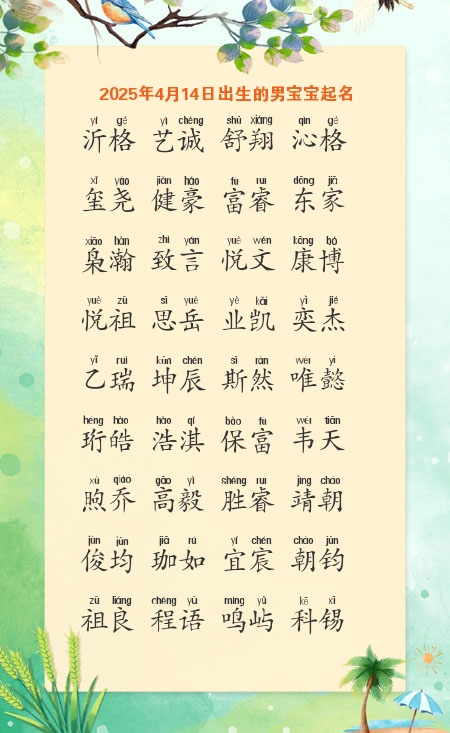 2025年4月14日出生的男宝宝起名
yí gé yì chéng shū xiáng qìn gé
沂格 艺诚 舒翔 沁格
xǐ yáo jiàn háo fù ruì dōng jiā
玺尧 健豪 富睿 东家
xiāo hàn zhì yán yuè wén kāng bó
枭瀚 致言 悦文 康博
yuè zǔ sī yuè yè kǎi yì jié
悦祖 思岳 业凯 奕杰
yǐ ruì kūn chén sī rán wéi yì
乙瑞 坤辰 斯然 唯懿
héng hào hào qí bǎo fù wéi tiān
珩皓 浩淇 保富 韦天
xù qiáo gāo yì shèng ruì jìng cháo
煦乔 高毅 胜睿 靖朝
jùn jūn jiā rú yí chén cháo jūn
俊均 珈如 宜宸 朝钧
zǔ liáng chéng yǔ míng yǔ kē xī
祖良 程语 鸣屿 科锡